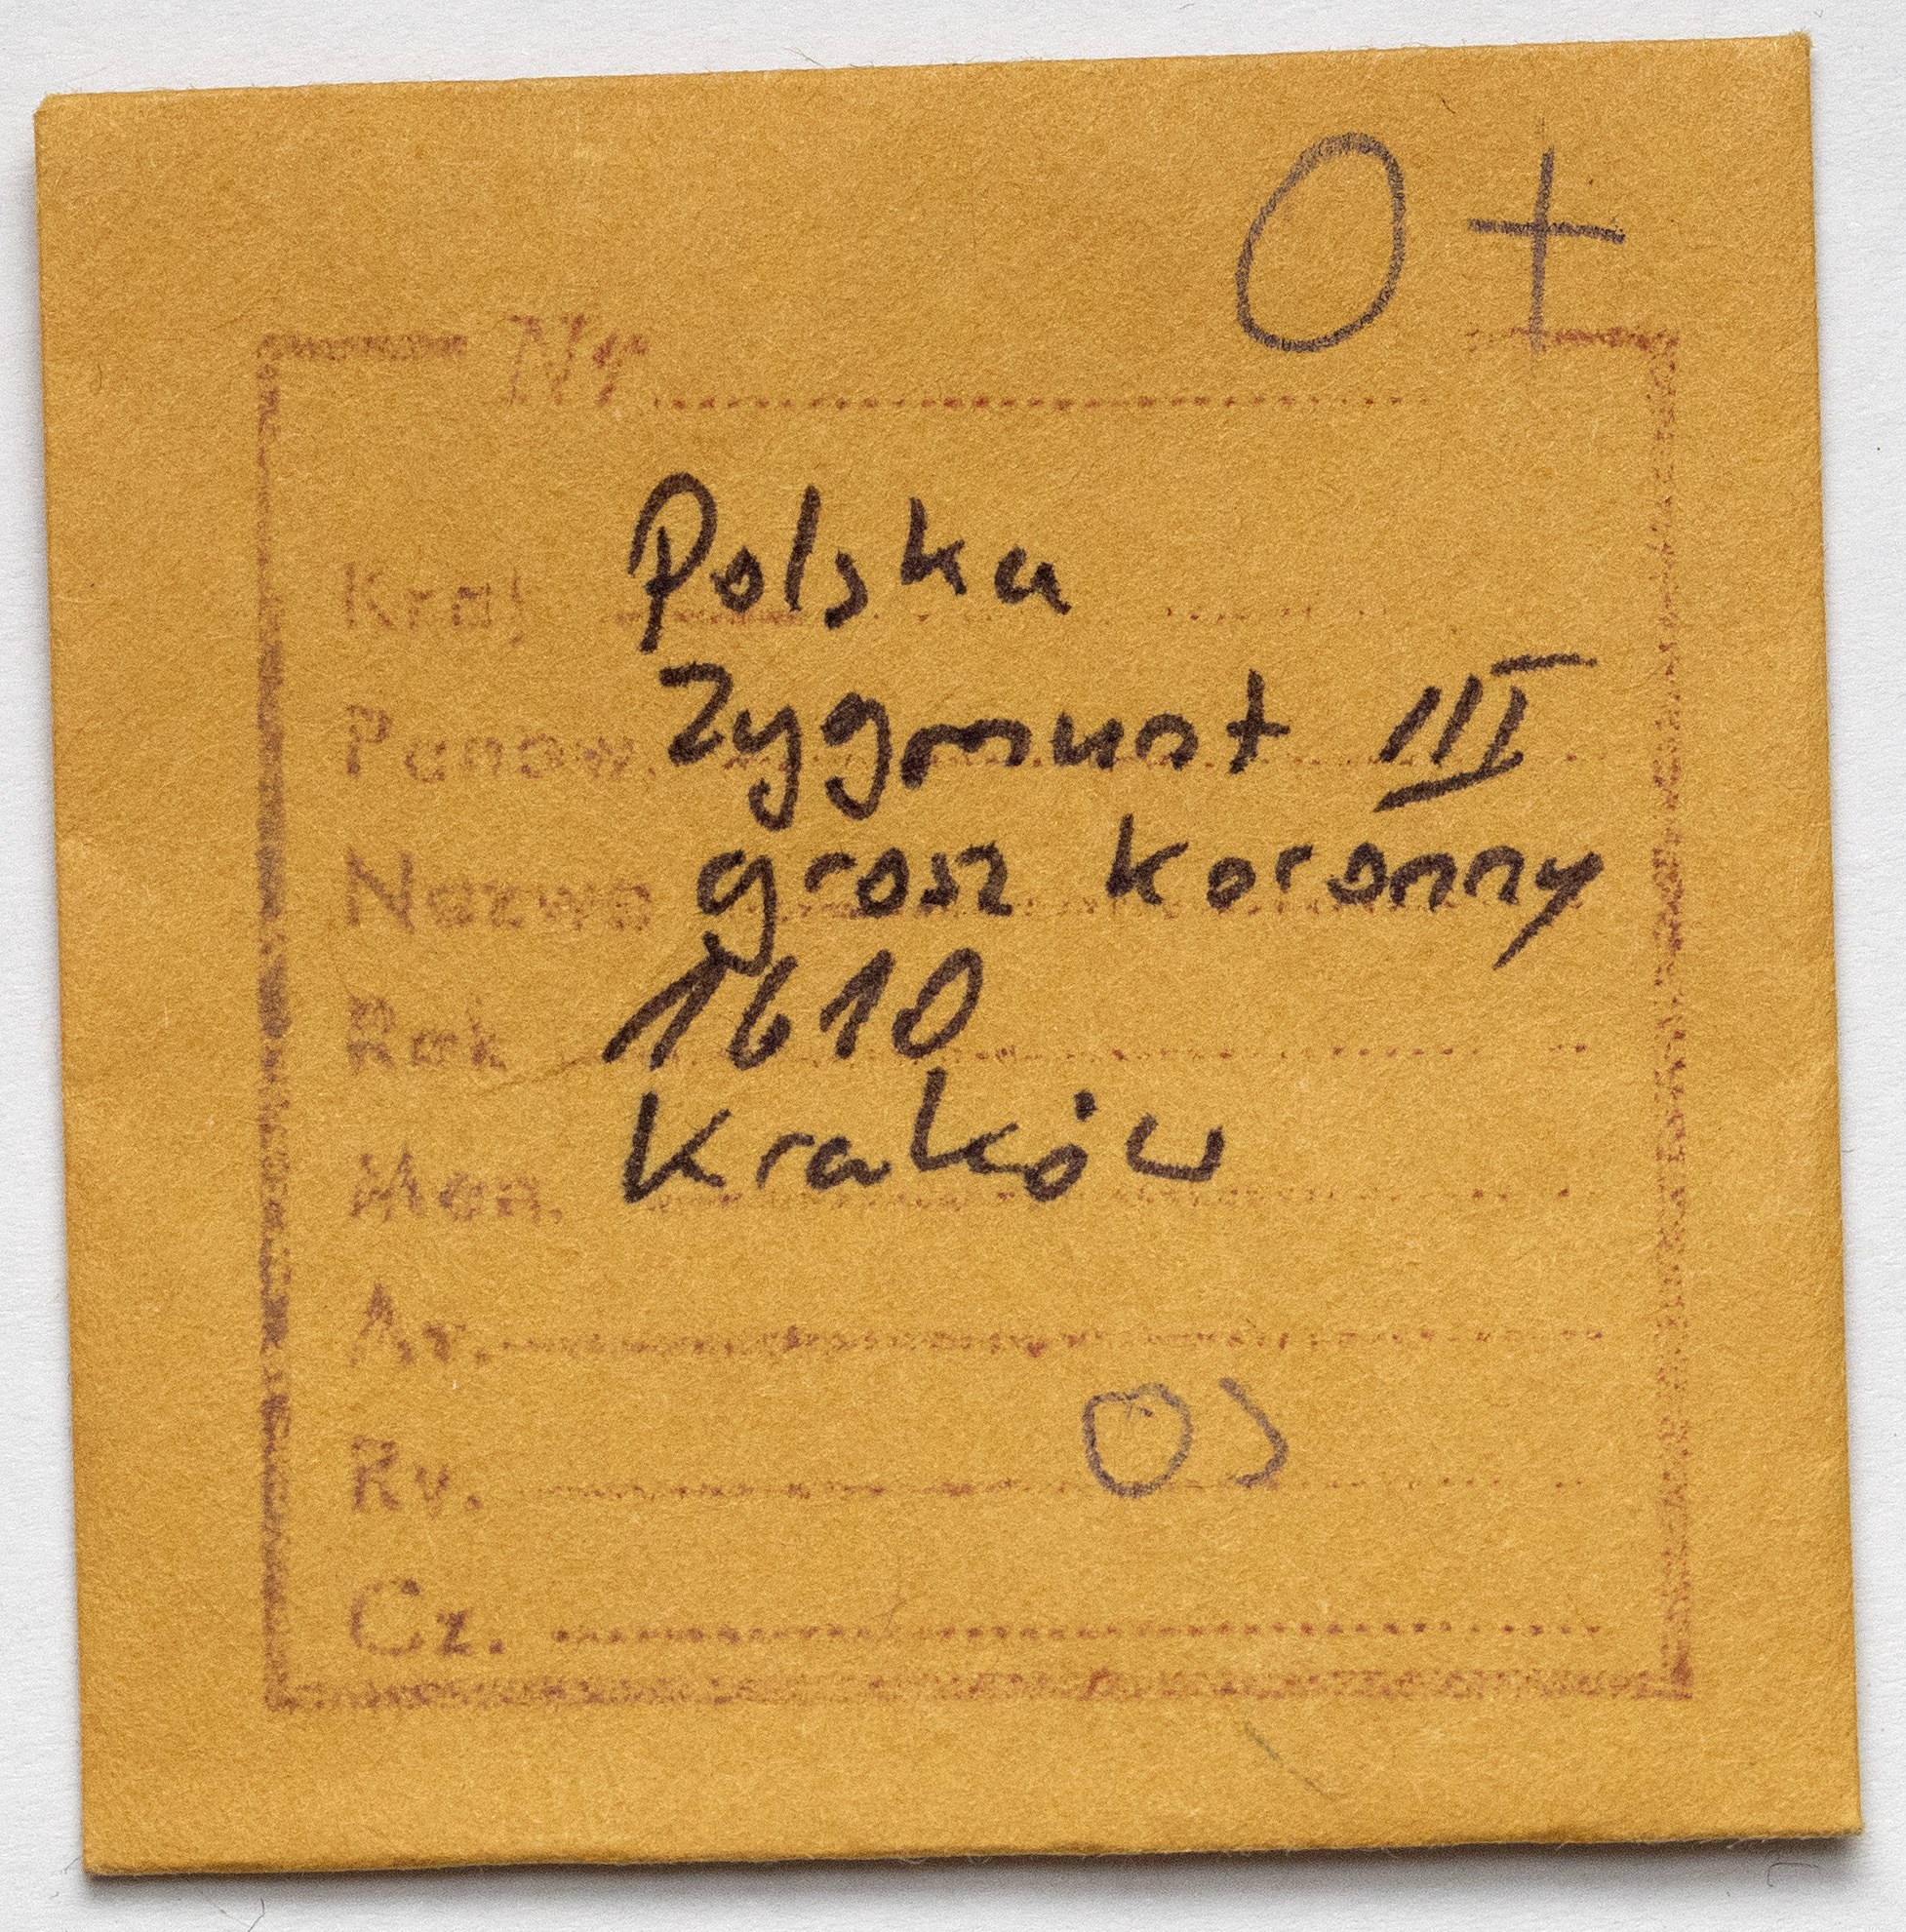 O +
Nr
Kraj Polska
Panow. Zygmunt III
Nazwa grosz koronny
Rok 1610
Men. Kraków
Av.
Rv.
Cz.